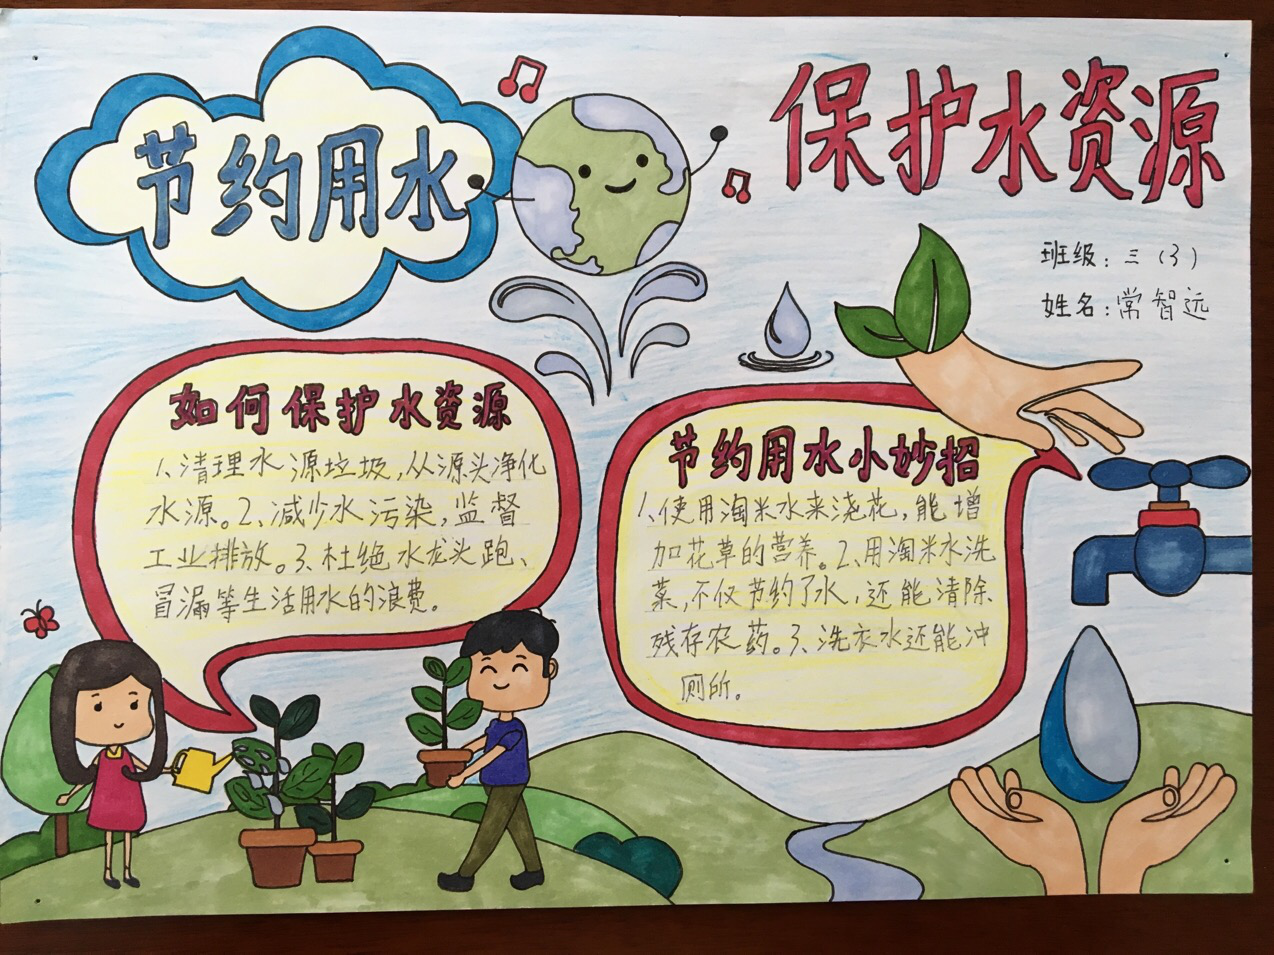 节约用水
保护水资源
班级：三（3）
姓名：常智远
如何保护水资源
1、清理水源垃圾，从源头净化
水源。2、减少水污染，监督
工业排放。3、杜绝水龙头跑、
冒漏等生活用水的浪费。
节约用水小妙招
1、使用淘米水来浇花，能增
加花草的营养。2、用淘米水洗
菜，不仅节约了水，还能清除
残存农药。3、洗衣水还能冲
厕所。